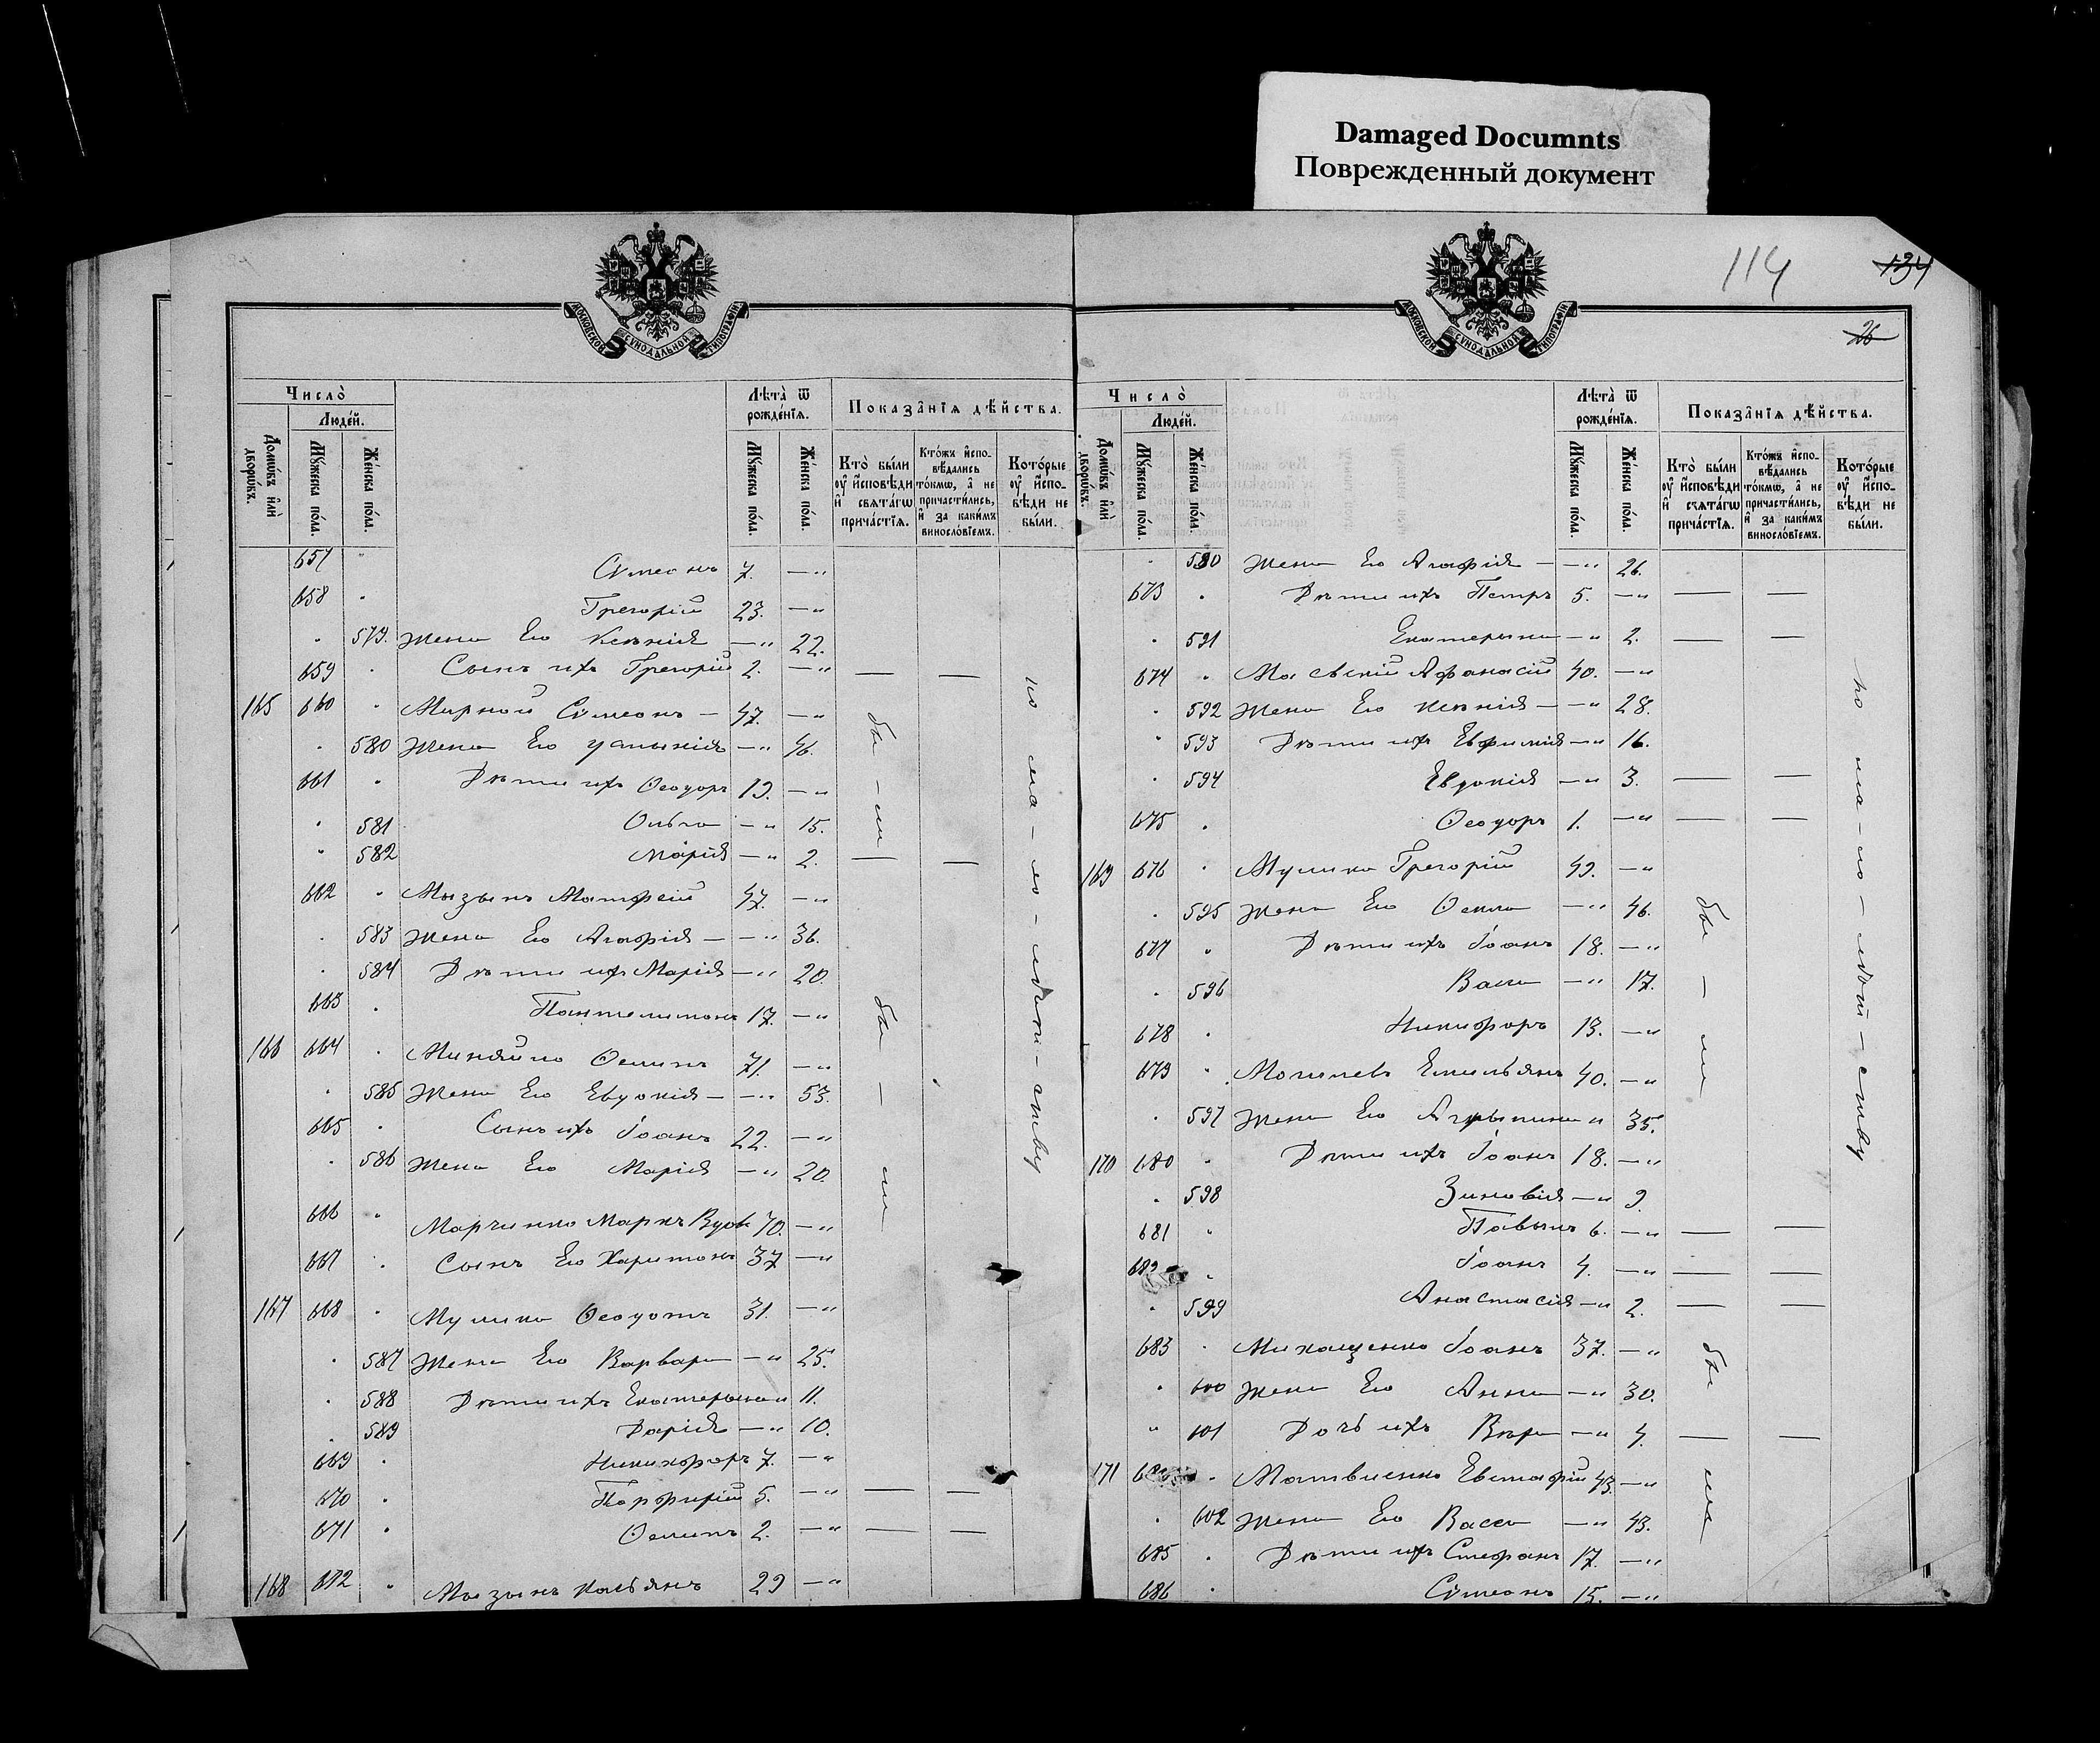 Damaged Documnts
Поврежденный документ
МОСКОВСКОЙ СУНОДАЛЬНОЙ ТИПОГРАФІИ
Число̀
Люде́й.
Домѡ́въ и҆лѝ дворѡ́въ.
Мꙋ́жеска по́ла.
Же́нска по́ла.
Лѣта̀ ѿ рожде́нїѧ.
Мꙋ́жеска по́ла.
Же́нска по́ла.
Показа̑нїѧ дѣ́йства.
Кто̀ бы́ли оу҆ и҆сповѣ́ди и҆ свѧта́гѡ прича́стїѧ.
Кто́жъ и҆спо-вѣ́дались то́кмѡ, а҆ не причасти́лись, и҆ за каки́мъ винослові́емъ.
Кото́рые оу҆ и҆спо-вѣ́ди не бы́ли.
651 " Сѵмеонъ 7. — "
658 " Григорій 23. — "
" 579. Жена Его Ксенія — " 22.
659 " Сынъ ихъ Григорій 2. — " — —
165 660 " Мирной Сѵмеонъ — 47. — "
" 580 Жена Его Устинія — " 46.
661 " Дѣти ихъ Ѳеодоръ 19. — "
" 581 Ольга — " 15.
" 582 Марія — " 2. — —
662 " Мазынъ Матфей 47. — "
" 583 Жена Его Агафія — — " 36.
" 584 Дѣти ихъ Марія — " 20.
663 " Пантелимонъ 17. — "
166 664 " Ѳеминъ 71. — "
" 585 Жена Его Евдокія — — " 53.
665 " Сынъ ихъ Іоанъ 22. — "
" 586 Жена Его Марія — " 20.
666 " Марченко Маркъ Вдов 70. — "
667 " Сынъ Его Харитонъ 37 — "
167 668 " Мулика Ѳеодотъ 31. — "
" 587 Жена Его Варвара — " 25.
" 588 Дѣти ихъ Екатерына " 11.
" 589 Дарія — " 10.
669 " Никифоръ 7. — "
670 " Порфирій 5. — " — —
671 " Ѳеминъ 2. — " — —
168 672 " Мазынъ Касьянъ 29 — "
бы - ли
бы - ли
по ма - ло - лѣт - ству
114
134
26
МОСКОВСКОЙ СУНОДАЛЬНОЙ ТИПОГРАФІИ
Число̀
Люде́й.
Домѡ́въ и҆лѝ дворѡ́въ.
Мꙋ́жеска по́ла.
Же́нска по́ла.
Лѣта̀ ѿ рожде́нїѧ.
Мꙋ́жеска по́ла.
Же́нска по́ла.
Показа̑нїѧ дѣ́йства.
Кто̀ бы́ли оу҆ и҆сповѣ́ди и҆ свѧта́гѡ прича́стїѧ.
Кто́жъ и҆спо-вѣ́дались то́кмѡ, а҆ не причасти́лись, и҆ за каки́мъ винослові́емъ.
Кото́рые оу҆ и҆спо-вѣ́ди не бы́ли.
" 590 Жена Его Агафія — — " 26.
673 " Дѣти ихъ Петръ 5. — " — —
" 591 Екатерына — " 2. — —
674 " Афанасій 40. — "
" 592 Жена Его Ксенія — — " 28.
" 593 Дѣти ихъ Евфимія — " 16.
" 594 Евдокія — " 3. — —
675 " Ѳеодоръ 1. — " — —
169 676 " Мулика Григорій 49. — "
" 595 Жена Его Ѳекла — " 46.
677 " Дѣти ихъ Іоанъ 18. — "
" 596 Васса — " 17.
678 " Никифоръ 13. — "
679 " Могилевъ Емильянъ 40. — "
" 597 Жена Его Агрыпина " 35.
170 680 " Дѣти ихъ Іоанъ 18. — "
" 598 Зиновія — " 9.
681 " Павылъ 6. — " — —
682 " Іоанъ 4. — " — —
" 599 Анастасія — " 2. — —
683 " Михащенко Іоанъ 37. — "
" 600 Жена Его Анна — " 30.
" 601 Дочь ихъ Вѣра — " 4. — —
171 684 " Матвиенко Евстафій 43. — "
" 602 Жена Его Васса — " 43.
685 " Дѣти ихъ Стефанъ 17. — "
686 " Сѵмеонъ 15. — "
бы - ли
бы ли
по ма - ло - лѣт - ству